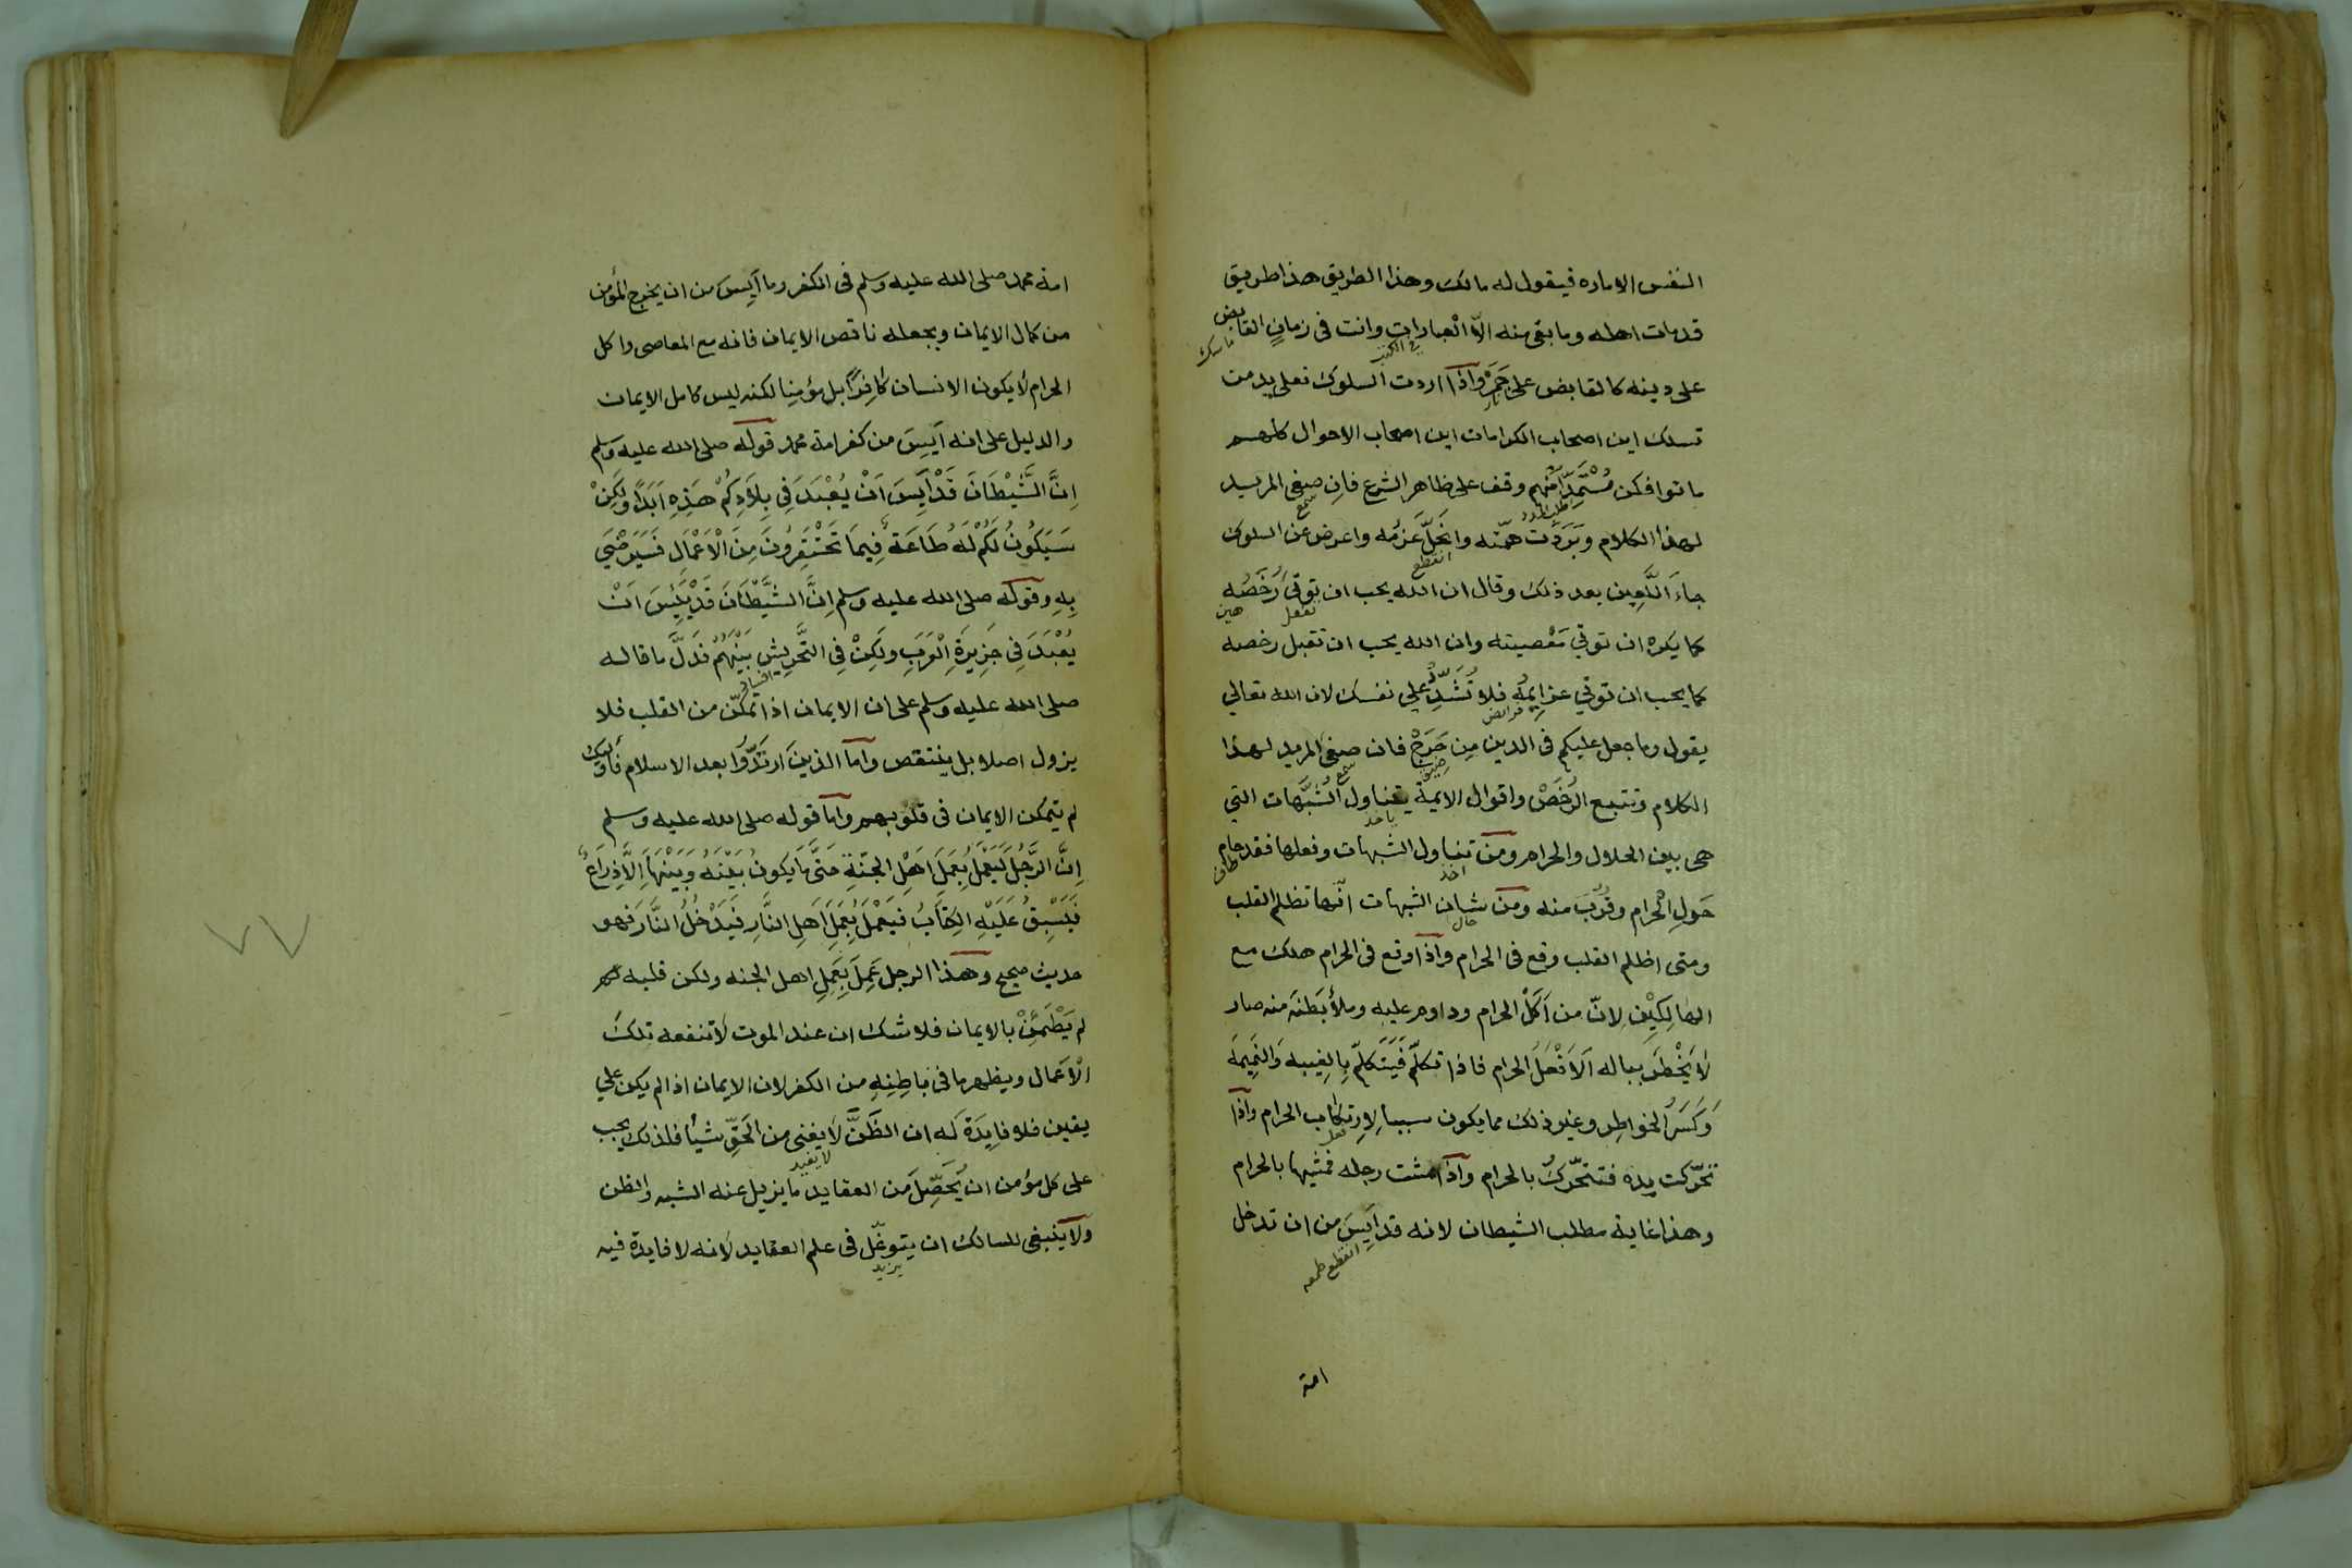 النفس الاماره فيقول له مالك وهذا الطريق هذا طريق
قدمات اهله وما بقي منه الّا العبارات وانت في زمانٍ القابض
في الكتب
ماسك
على دينه كالقابض على جَمَرْ واذا اردت السلوك فعلى يد من
نار
تسلك اين اصحاب الكرامات اين اصحاب الاحوال كلهم
ماتوا فكن مُسْتَمِدّاً منهم وقف على ظاهر الشرع فان صغى المريد
سمع
لهذا الكلام وبَرَدَت همّته وانحَلَّ عزمُه واعرض عن السلوك
انقطع
جاءَ اللَّعِين بعد ذلك وقال ان الله يحب ان توتَى رُخَصُه
تفعل
هين
كما يكره ان توتي مَعْصيته وان الله يحب ان تقبل رخصه
كما يحب ان توتي عزايمُه فلا تُشَدِّدْ علي نفسك لان الله تعالي
فرايض
يقول وما جعل عليكم في الدين مِن حَرَجْ فان صغى المريد لهذا
ضيق
سمع
الكلام وتتبع الرُخَصْ واقوال الايمة يتناول الشُبُهات التي
ياخذ
هي بين الحلال والحرام ومن تناول الشبهات وفعلها فقد حام
اخذ
طاف
حَولِ الحرام وقَرُبَ منه ومن شان الشبهات انّها تظلم القلب
حال
ومتى اظلم القلب وقع في الحرام واذا وقع في الحرام هلك مع
الهالِكِيْن لانّ من اَكَلَ الحرام وداوم عليه وملأ بَطْنَه منه صار
لا يَخْطُر بباله اَلا فْعلُ الحرام فاذا تكلّم فَيَتَكلّم بِالغيبه وَالنَمِيمَة
وَكَسَرُ الخواطِر وغير ذلك مما يكون سببا لِارتكاب الحرام واذا
فعل
تحرّكت يده فتتحَرّكُ بالحرام واذا مشت رجله فمشيها بالحرام
وهذا غاية مطلب الشيطان لانه قد اَيِسَ من ان تدخل
انقطع طمعه
امة
امة محمد صلى الله عليه وسلم في الكفر وما اَيِسَ من ان يخرج المؤمن
من كمال الايمان ويجعله ناقص الايمان فانه مع المعاصي واكل
الحرام لا يكون الانسان كافِراً بل مؤمِنا لكنه ليس كامل الايمان
والدليل على انه اَيِسَ من كفر امة محمد قوله صلى الله عليه وسلم
اِنَّ الشَّيْطَانَ قَدْ اَيِسَ اَنْ يُعْبَدَ فِي بِلَادِكُمْ هَذِهِ اَبَدًا وَلَكِنْ
سَيَكُونُ لَكُمْ لَهُ طَاعَةٌ فِيمَا تَحْتَقِرُونَ مِنَ الْاَعْمَالِ فَسَيَرْضَيَ
بِهِ وقوله صلى الله عليه وسلم اِنَّ الشَّيْطَانَ قَدْ يَئِسَ اَنْ
يُعْبَدَ فِي جَزِيرَةِ الْعَرَبِ ولَكِنْ فِي التَّحْرِيشِ بَيْنَهُمْ فَدَلَّ ما قاله
الفساد
صلى الله عليه وسلم على ان الايمان اذا تمكّن من القلب فلا
يزول اصلا بل ينتقص واما الذين ارتَدّوا بعد الاسلام فأوليك
لم يتمكن الايمان في قلوبهم واما قوله صلى الله عليه وسلم
اِنَّ الرَّجُلَ لَيَعْمَلُ بِعَمَلِ اَهْلِ الجنَّةِ حَتَّى مَا يَكُونُ بَيْنَهُ وَبَيْنَهَا اِلَّا ذِرَاعٌ
فَيَسْبِقُ عَلَيْهِ الكِتَابُ فَيَعْمَلُ بِعَمَلِ اَهلِ النَّارِ فَيَدْخُلُ النَّارَ فهو
حديث صحيح وهذا الرجل عَمِلَ بِعَمَلِ اهل الجنه ولكن قلبه
لم يَطْمَئِنْ بالايمان فلا شك ان عند الموت لا تنفعه تلك
الْاَعْمال ويظهر ما في بَاطِنِهِ من الكفر لان الايمان اذا لم يكن علي
يقين فلا فايِدَة لَه ان الظَنَّ لَا يغني من الحَقّ شيأ فلذلك يجب
لا يفيد
على كل مؤمن ان يُحَصِّلَ من العقايد ما يزيل عنه الشبه والظن
ولا ينبغي للسالك ان يتوغّل في علم العقايد لانه لا فايدة فيه
يزيد